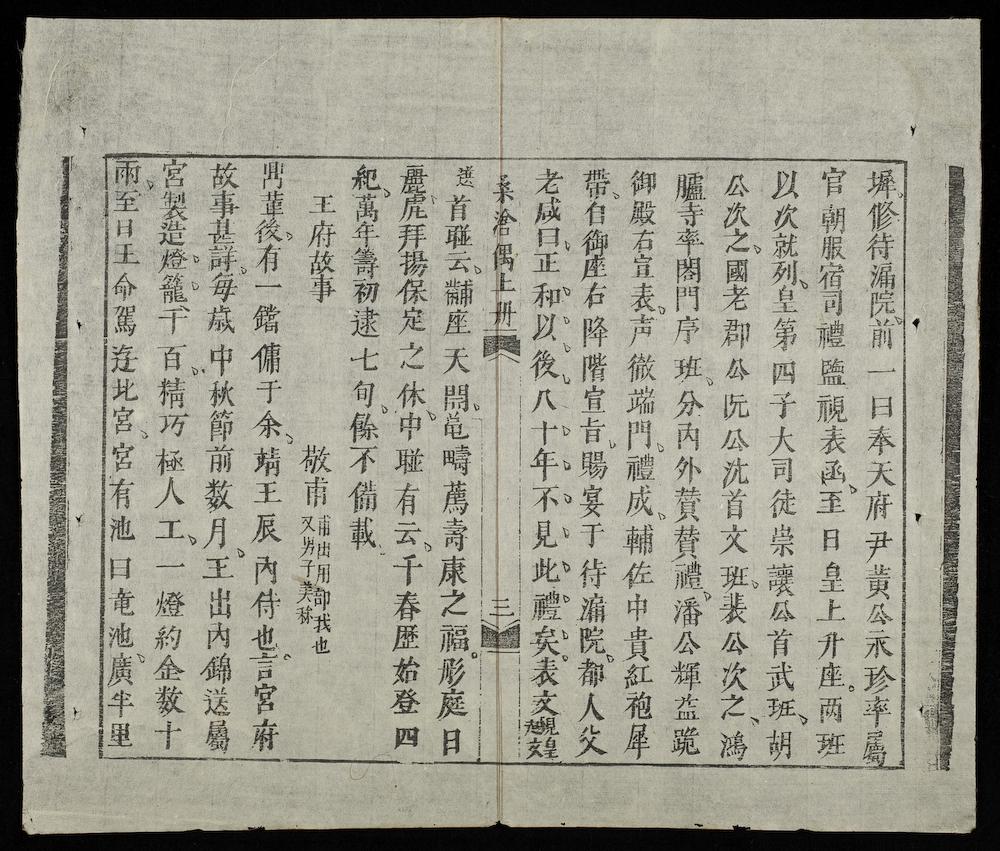 墀修待漏院前一日奉天府尹黃公永珍率屬
官朝服宿司禮監視表函至日皇上升座两班
以次就列皇第四子大司徒崇讓公首武班胡
公次之國老郡公阮公沈首文班裴公次之鴻
臚寺率閣門序班分內外贊贊禮潘公輝益跪
御殿右宣表声徹端門禮成輔佐中貴紅袍犀
帶自御座右降階宣旨賜宴于待漏院都人父
老咸曰正和以後八十年不見此禮矣表文
桑滄偶上册 三
首聯云黼座天開皂疇薦壽康之福彤庭日
麗虎拜揚保定之休中聯有云千春歷始登四
紀萬年籌初逮七旬餘不備載
王府故事 敬甫 又男子美称
有一鐺傭于余靖王辰內侍也言宮府
故事甚詳每歲中秋節前数月王出內錦送屬
宮製造燈籠千百精巧極人工一燈約金数十
兩至日王命駕遊北宮宮有池曰竜池廣半里